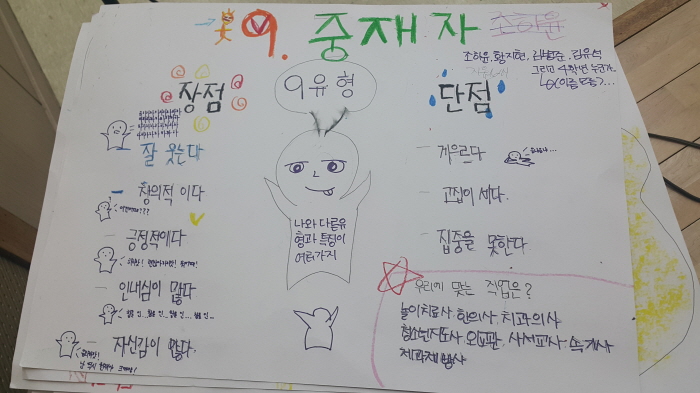 9. 중재자
조하윤, 황지현, 김유석
그리고 4학년 누군가.
장점
9유형
단점
잘 웃는다
- 창의적 이다
- 긍정적이다
- 인내심이 많다
- 자신감이 많다
나와 다른유
형과 특징이
여러가지
- 게으르다
- 고집이 세다.
- 집중을 못한다
우리에 맞는 직업은?
놀이치료사 한의사, 치과의사
청소년지도사 외교관, 사서교사 속기사
제과제빵사